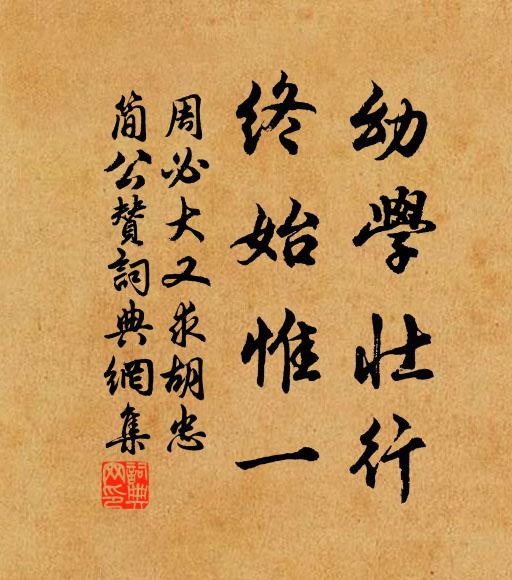 幼學壯行
終始惟一
周必大又求胡忠
簡公贊詞典網集
詞典网印